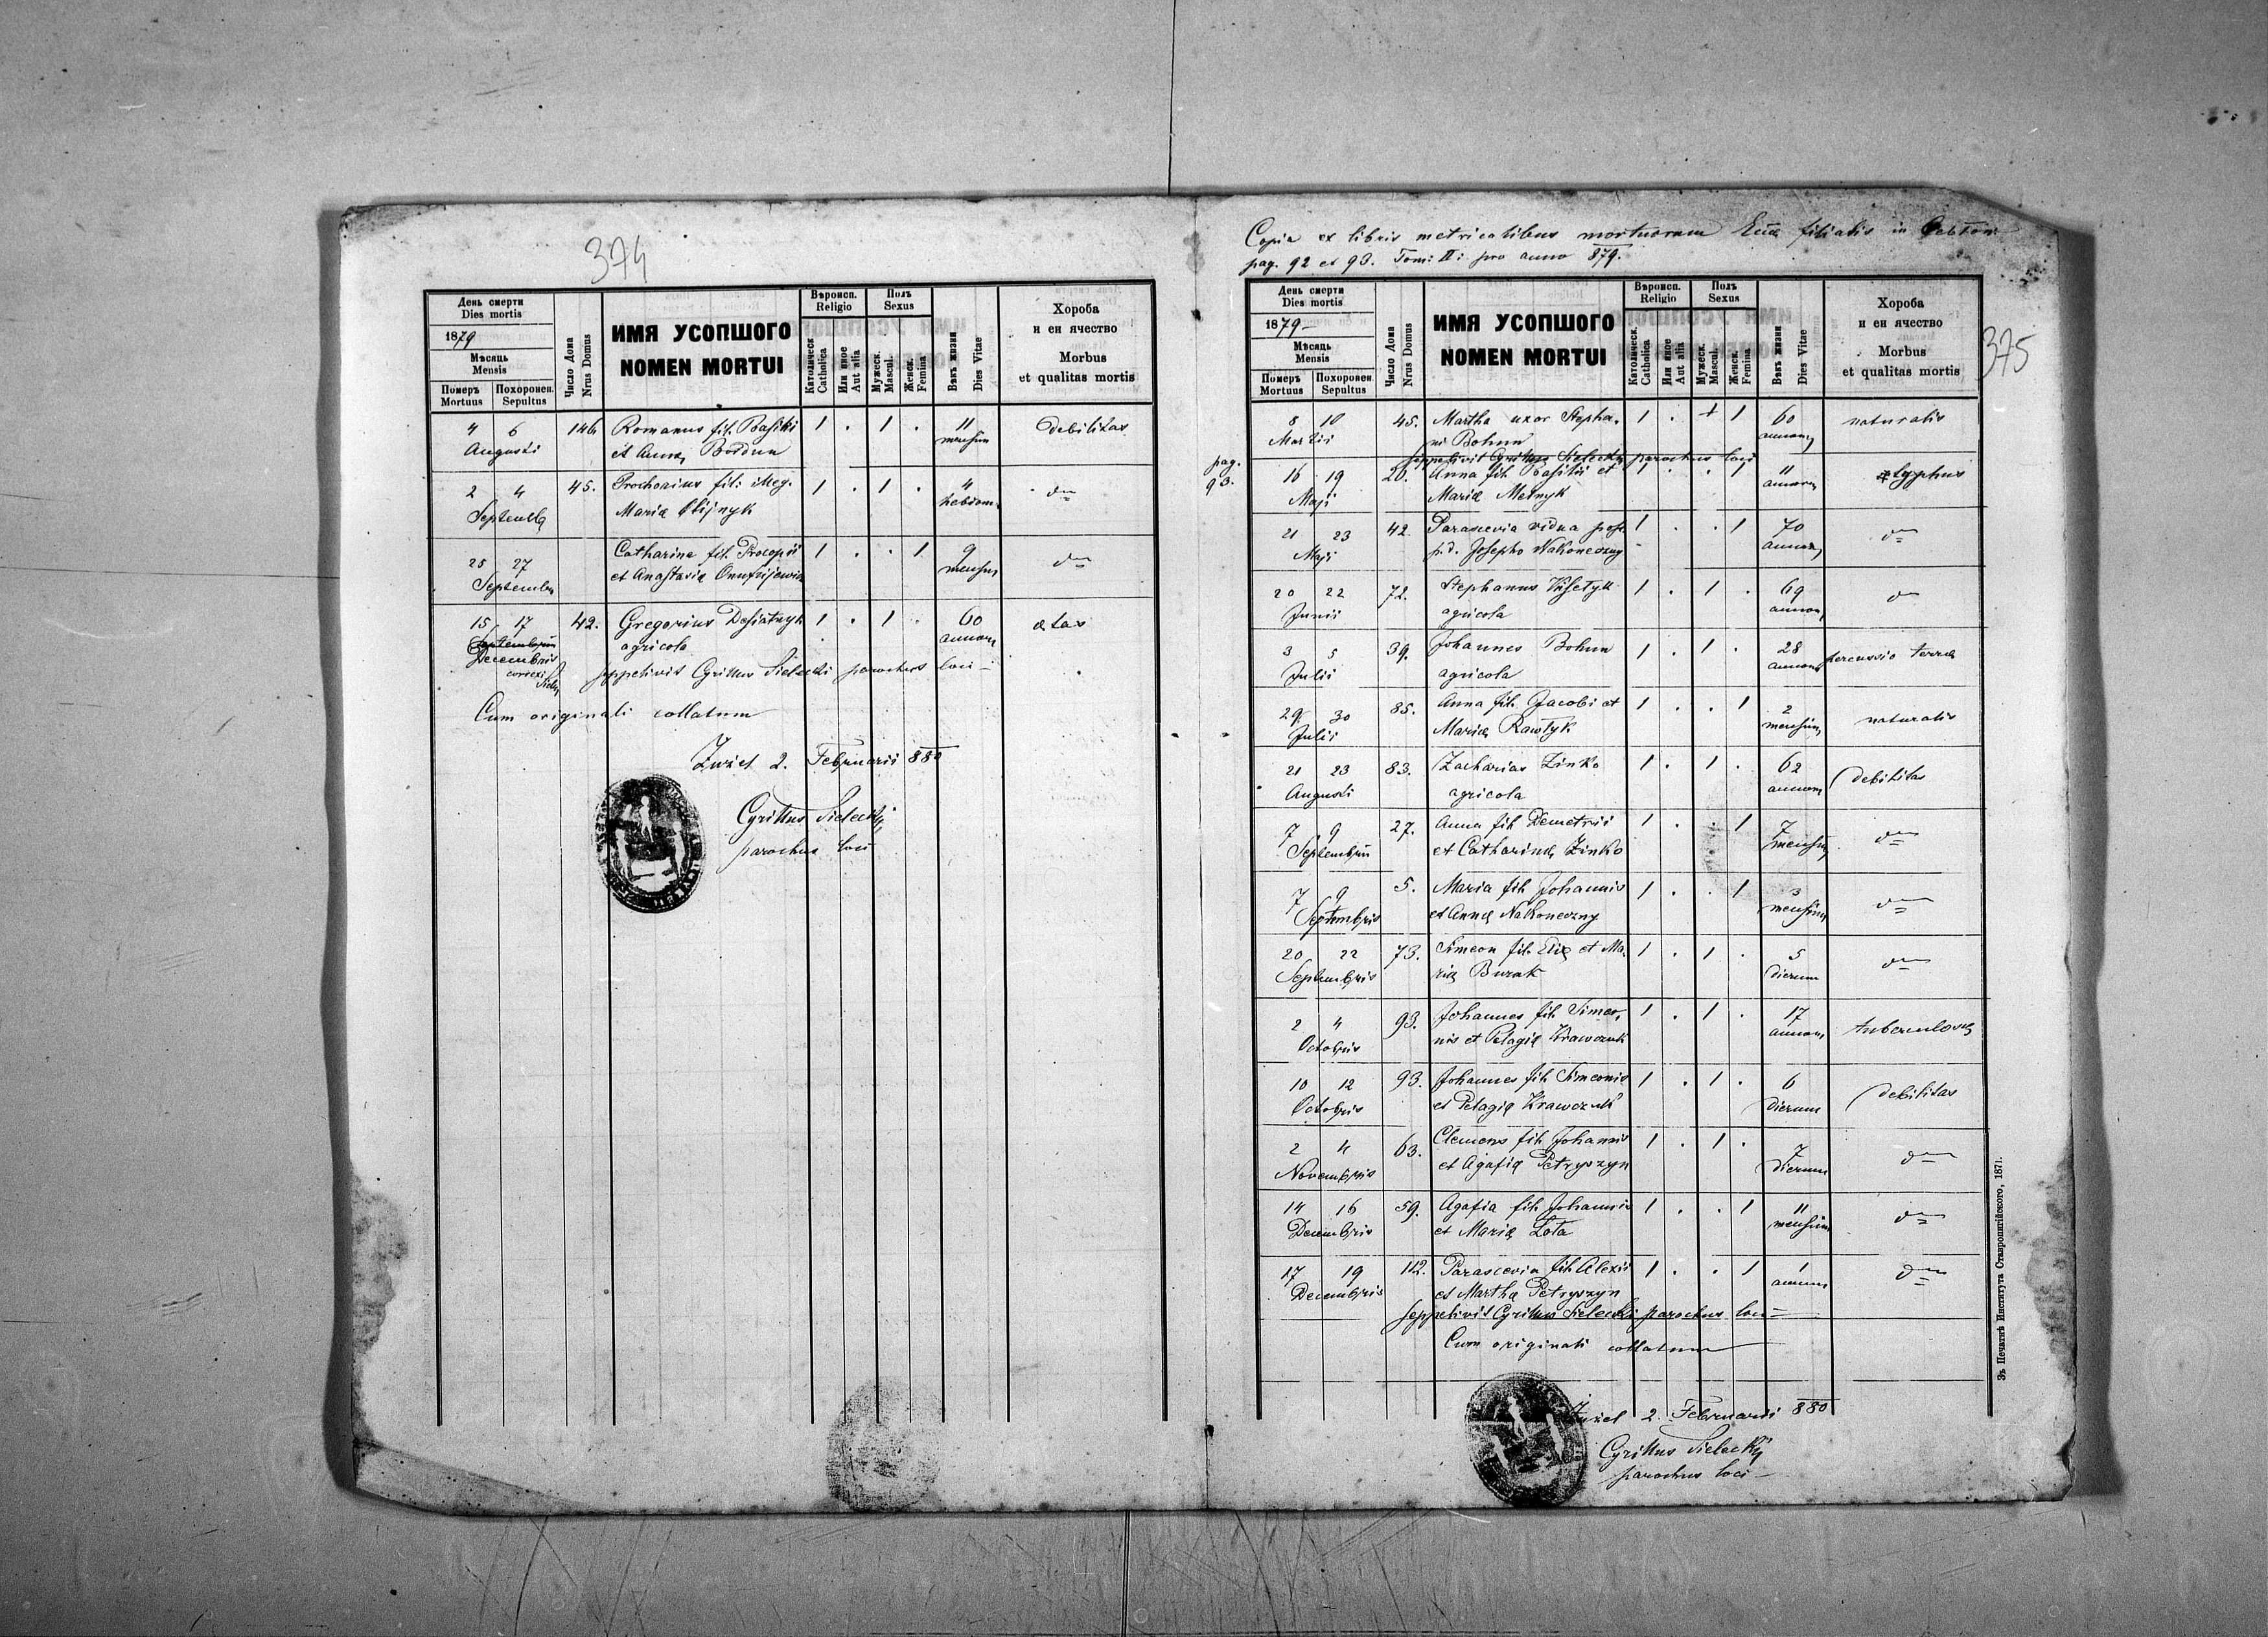 374
День смерти
Dies mortis
1879
Мѣсяць
Mensis
Померъ Похоронен.
Mortuus Sepultus
Число Дома
Nrus Domus
ИМЯ УСОПШОГО
NOMEN MORTUI
Вѣроисп.
Religio
Католическ.
Catholica
Или иное
Aut alia
Полъ
Sexus
Мужеск.
Mascul.
Женск.
Femina
Вѣкъ жизни
Dies Vitae
Хороба
и еи ячество
Morbus
et qualitas mortis
4 6 146 Romanus fil. Basilii 1 . 1 . 11 debilitas
Augusti et Annæ Boddun mensium
2 4 45. Prochorius fil: illeg. 1 . 1 . 4 dto
Septembr Mariæ Olijnyk hebdom.
25 27 Catharina fil. Procopii 1 . . 1 9 dto
Septembr et Anastasiæ Onufrijewicz mensium
15 17 42. Gregorius Desiatnyk 1 . 1 . 60 ætas
Septembris agricola annorum
Decembris
correxi seppelivit Cyrillus Sielecki parochus loci
Siel
Cum originali collatum
Żużel 2. Februarii 880
Cyrillus Sielecki
parochus loci
Copia ex libris metricalibus mortuorum Eccæ filialis in
pag. 92 et 93. Tom: II: pro anno 879.
375
День смерти
Dies mortis
1879
Мѣсяць
Mensis
Померъ Похоронен.
Mortuus Sepultus
Число Дома
Nrus Domus
ИМЯ УСОПШОГО
NOMEN MORTUI
Вѣроисп.
Religio
Католическ.
Catholica
Или иное
Aut alia
Полъ
Sexus
Мужеск.
Mascul.
Женск.
Femina
Вѣкъ жизни
Dies Vitae
Хороба
и еи ячество
Morbus
et qualitas mortis
8 10 45. Martha uxor Stepha- 1 . + 1 60 naturalis
Martii ni Bohun annorum
seppelivit Cyrillus Sielecki parochus loci
pag.
93.
16 19 20. Anna fil. Basilii et 1 . . 1 11 typhus
Maji Mariæ Melnyk annorum
21 23 42. Parascevia vidua post 1 . . 1 70 dto
Maji p.d. Josepho Nakoneczny annorum
20 22 72. Stephanus 1 . 1 . 69 dto
Junii agricola annorum
3 5 39. Johannes Bohun 1 . 1 . 28 percussio terræ
Julii agricola annorum
29 30 85. Anna fil. Jacobi et 1 . . 1 2 naturalis
Julii Mariæ Rawlyk mensium
21 23 83. Zacharias Zinko 1 . 1 . 62 debilitas
Augusti agricola annorum
7 9 27. Anna fil. Demetrii 1 . . 1 7 dto
Septembris et Catharinæ Zinko mensium
7 9 5. Maria fil. Johannis 1 . . 1 3 dto
Septembris et Annæ Nakoneczny mensium
20 22 73. Simeon fil. Eliæ et Ma- 1 . 1 . 5 dto
Septembris riæ Burak dierum
2 4 93. Johannes fil. Simeo- 1 . 1 . 17 tuberculosis
Octobris nis et Pelagiæ Krawczuk annorum
10 12 93. Johannes fil. Simeonis 1 . 1 . 6 debilitas
Octobris et Pelagiæ Krawczuk dierum
2 4 63. Clemens fil. Johannis 1 . 1 . 7 dto
Novembris et Agafiæ Petryszyn dierum
14 16 59. Agafia fil. Johannis 1 . . 1 11 dto
Decembris et Mariæ Lota mensium
17 19 112. Parascevia fil. Alexii 1 . . 1 1 dto
Decembris et Marthæ Petryszyn annum
seppelivit Cyrillus Sielecki parochus loci
Cum originali collatum
Żużel 2. Februarii 880
Cyrillus Sielecki
parochus loci
Зъ Печатнѣ Института Ставропигійского, 1871.